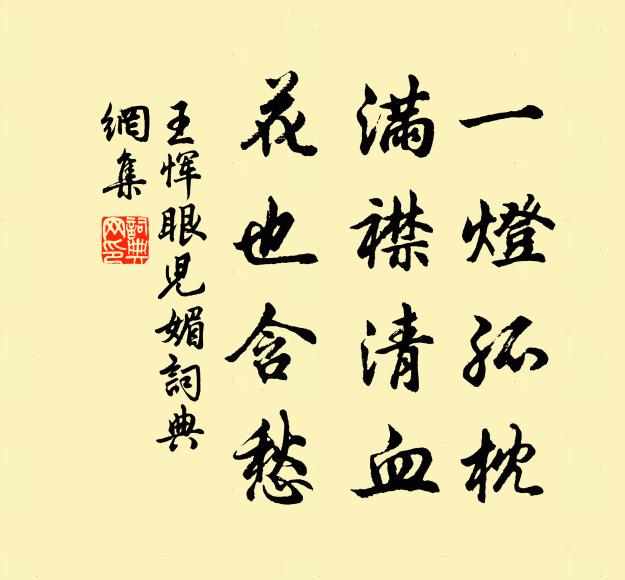 一燈孤枕
滿襟清血
花也含愁
王惲眼兒媚詞典
網集
詞典
网印